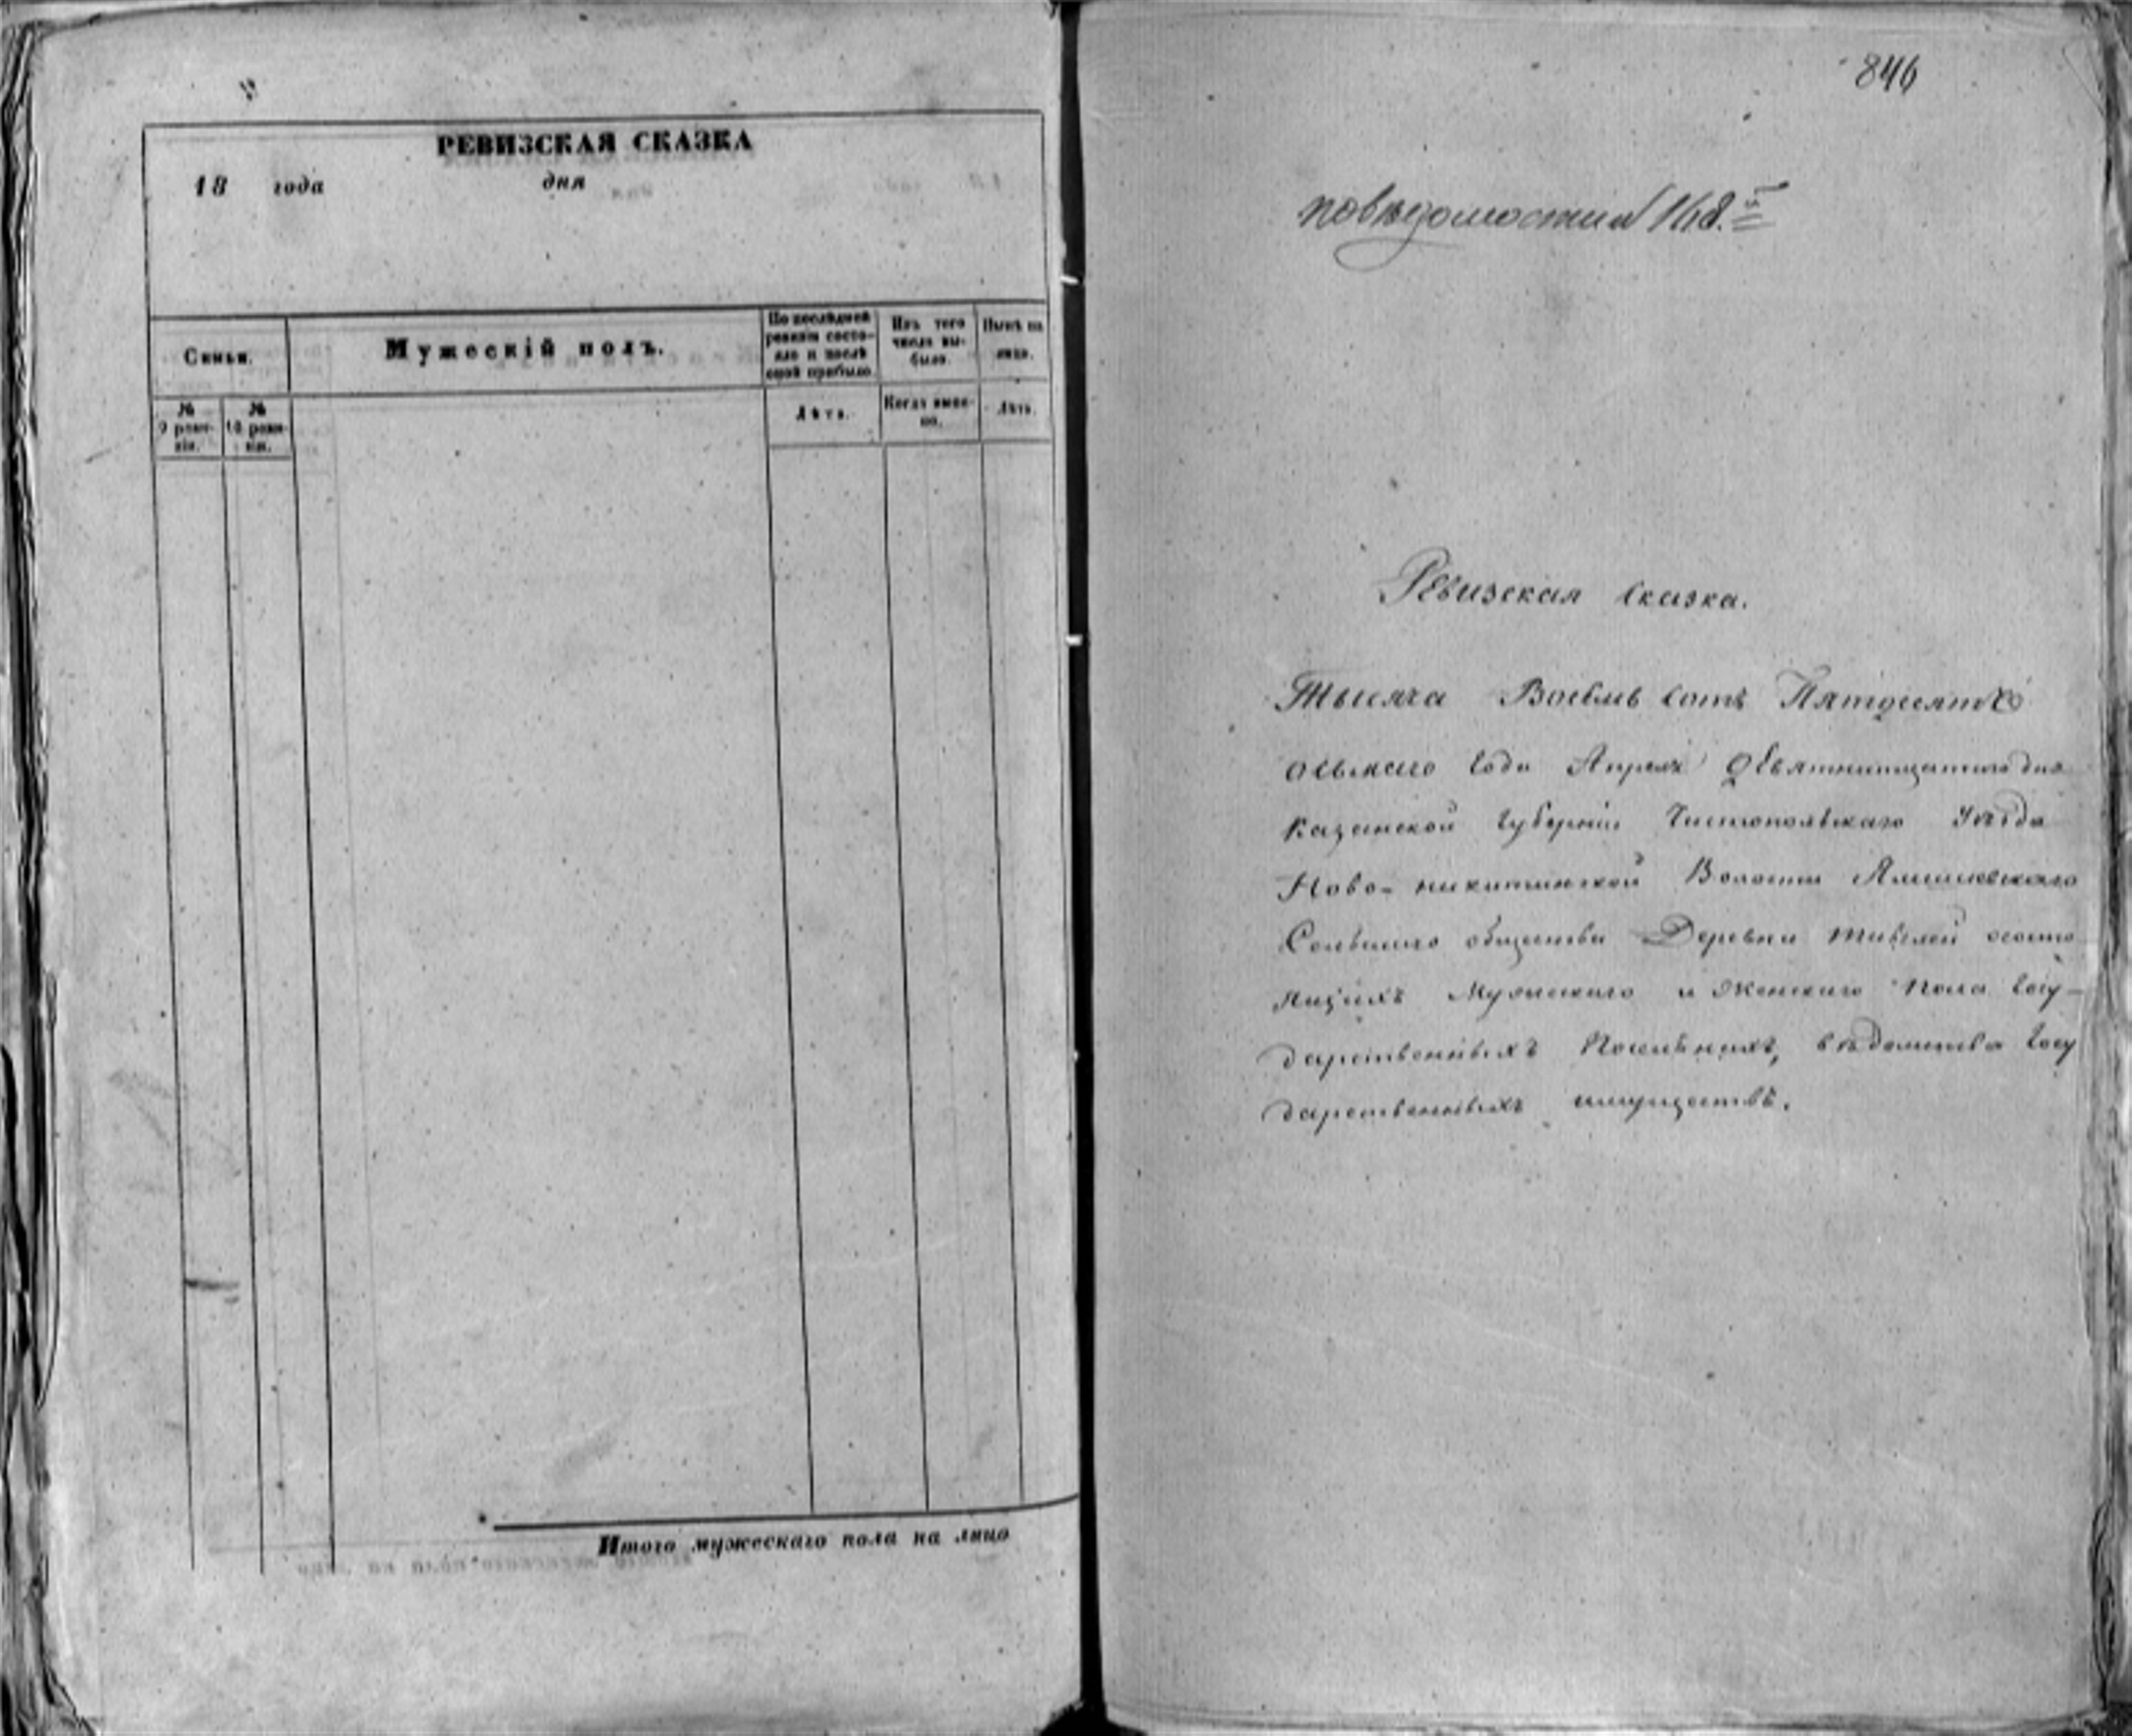 РЕВИЗСКАЯ СКАЗКА
18 года дня
Семьи.
Мужескій полъ.
По послѣдней ревизіи состояло и послѣ оной прибыло
Изъ того числа выбыло.
Нынѣ на лицо.
№ 9 ревизіи.
№ 10 ревизіи.
Лѣтъ.
Когда именно.
Лѣтъ.
Итого мужескаго пола на лицо
846
по вѣдомости № 168.й
Ревизская Сказка.
Тысяча Восемь сотъ Пятдесятъ
осьмаго Года Апреля девятнатцатаго дня
Казанской Губерніи Чистопольскаго Уѣзда
Ново-никитинской Волости
Сельскаго общества Деревни состо
ящихъ Мужескаго и Женскаго Пола Госу-
дарственныхъ вѣдомства Госу
дарственныхъ имуществъ.